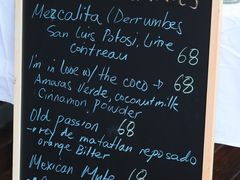 Mezcalita (Derrumbes
San Luis Potosi, Lime
contreau 68
I'm in love w/ the coco → 68
Amaras Verde, coconutmilk
Cinnamon Powder
Old passion 68
→ rey de matatlan reposado
orange Bitter
Mexican Mule 68